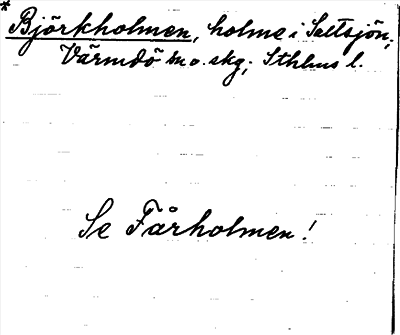 * Björkholmen, holme i Saltsjön;
Värmdö sn o. skg; Sthlms l.
Se Fårholmen!